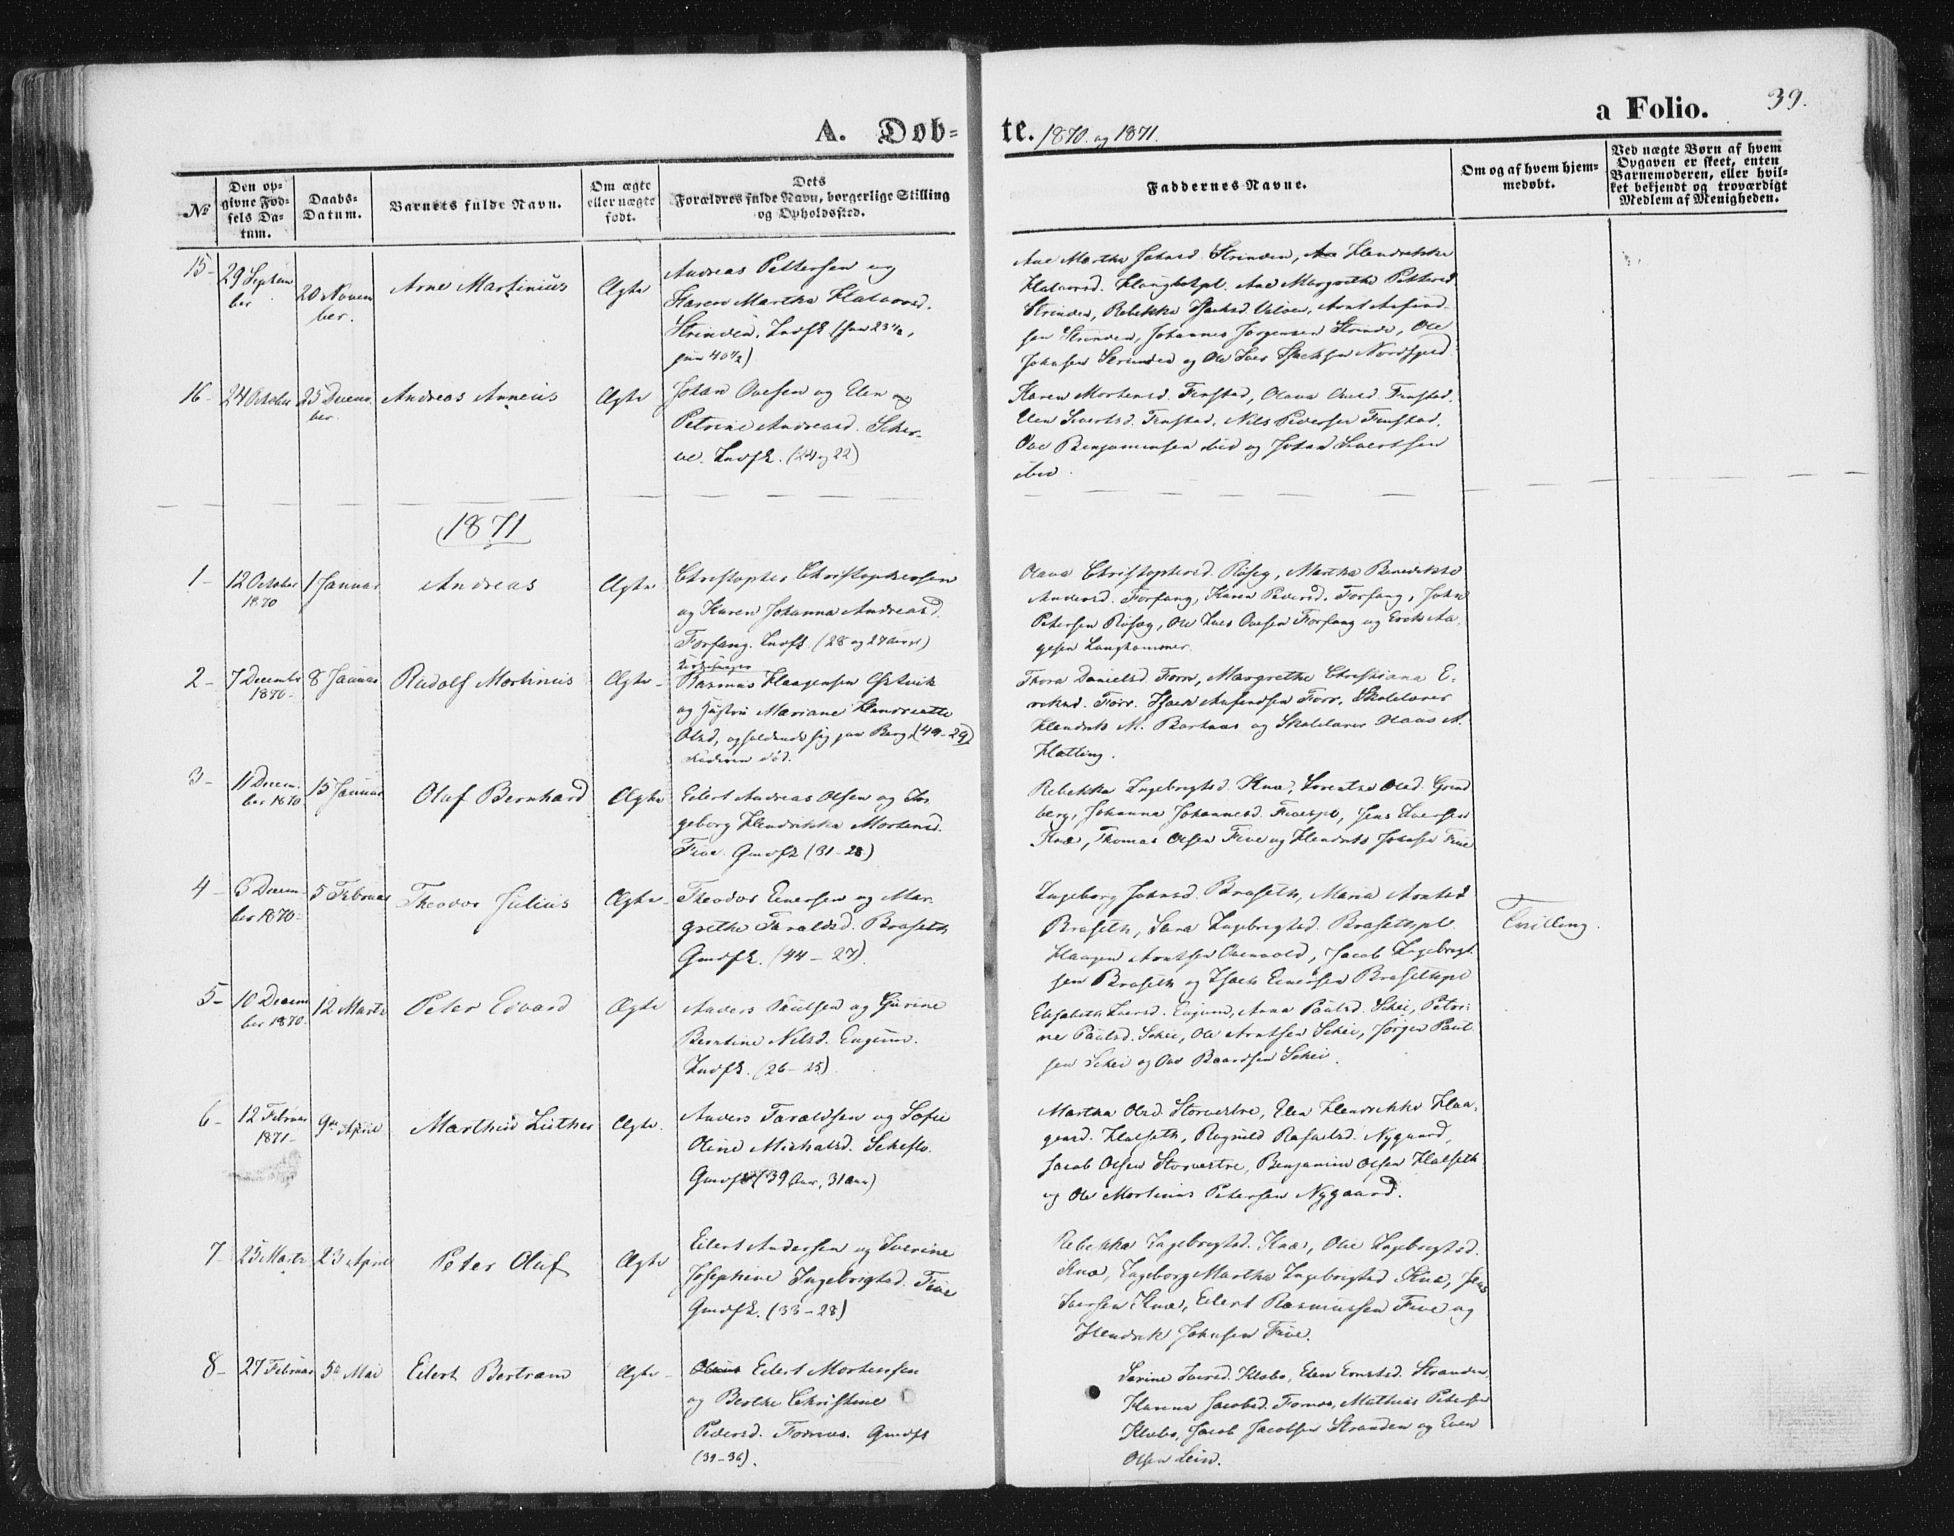 A. Døb-
te. 1870. og 1871.
a Folio. 39.
№
Den op-
givne Fød-
sels Da-
tum.
Daabs-
Datum.
Barnets fulde Navn.
Om ægte
eller uægte
født.
Dets
Forældres fulde Navn, borgerlige Stilling
og Opholdssted.
Faddernes Navne.
Om og af hvem hjem-
medøbt.
Ved uægte Børn af hvem
Opgaven er skeet, enten
Barnemoderen, eller hvil-
ket bekjendt og troværdigt
Medlem af Menigheden.
15-
29 Septem
ber
20 Novem
ber.
Arne Martinius
Ægte
Andreas Pettersen og
Karen Martha
Strinden. Indsk
Ane Martha Johnsd. Strinden, Hendrikke
Ane Margrethe Pettersd.
Strinden, Rebekka
sen Strinden, Johannes Jørgensen Strinde, Ole
Johnsen Strinden og Ole
16-
24 October
25 Decem
ber.
Andreas Anneus
Ægte
Johan Ovesen og Elen
Petrine Andreasd. Scher-
ve. Indsk. (24 og 22)
Karen Mortensd. Finstad, Olava Ovesd. Finstad.
Elen Sivertsd. Finstad, Nils Pedersen Finstad,
Ove Benjaminsen ibid og Johan Sivertsen
ibid.
1871
1-
12 October
1870
1 Januar
Andreas
Ægte
Christopher Christophersen
og Karen Johanna Andreasd.
Forfang. Indsk. (28 og 27
Olava Christophersd. Røseg, Martha Benedikte
Andersd. Forfang, Karen Pedersd. Forfang, John
Petersen Røseg, Ole Ovesen Forfang og Erik Aa-
gesen Langhammer.
2-
7 December
1870-
8 Januar
Rudolf Martinius
Ægte-
Kirkesanger
Rasmus Haagensen Østvik
og Hustru Mariane Henriette
Olsd, opholdende sig paa Berg (49-29)
Faderen død.
Thora Danielsd. Forr, Margrethe Christiana E-
riksd. Forr. Isach Forr. Skolelærer
Hendrik M. Bartnes og Skolelærer Olaus A.
Hatling.
3-
11 Decem-
ber 1870
15 Januar
Oluf Bernhard
Ægte
Eilert Andreas Olsen og In-
geborg Hendrikka Mortensd.
Five. Gmdsk (31-28)
Rebekka Ingebrigtsd. Knæ, Lorentze Olsd. Grind
berg, Johanna Johannesd. Fivespl, Jens Iversen
Knæ, Thomas Olsen Five og Hendrik Johnsen Five
4-
6 Decem-
ber 1870-
5 Februar
Theodor Julius
Ægte-
Theodor Einersen og Mar-
grethe Taraldsd. Braseth
Gmdsk. (44-27)
Ingeborg Johnsd. Braseth, Maria Arntsd
Braseth, Sara Ingebrigtsd. Brasethpl.
Haagen Arntsen Overvold, Jacob Ingebrigt-
sen Braseth og Isach Einersen Brasethspl
Tvilling.
5-
10 Decem
ber 1870-
12 Marts
Peter Edvard
Ægte
Anders Paulsen og Gurine
Berntine Nilsd. Engum.
Indsk. (26-25)
Elisabeth Iversd. Engum, Anna Paulsd. Schei, Petri-
ne Paulsd. Schei, Ole Arntsen Schei, Jørgen Paul-
sen Schei og Ove Baardsen Schei.
6-
12 Februar
1871-
9de April
Marthin Luther
Ægte.
Anders Taraldsen og Sofie
Oline Michalsd. Scheflo.
Gmdsk (39 Aar, 31 Aar)
Martha Olsd. Storvestre, Elen Hendrikke Haa-
gensd. Halseth, Ragnild Rafaelsd. Nygaard,
Jacob Olsen Storvestre, Benjamin Olsen Halseth
og Ole Martinus Petersen Nygaard.
7-
25 Marts
23 April
Peter Oluf
Ægte
Eilert Andersen og Iverine
Josephine Ingebrigtsd. Five
Gmdsk. (33-28)
Rebekka Ingebrigtsd. Knæ, Olie Ingebrigtsd.
Knæ, Ingeborg Martha Ingebrigtsd Knæ, Jens
Iversen Knæ, Eilert Rasmussen Five og
Hendrik Johnsen Five.
8-
27 Februar
5te Mai
Eilert Bertram
Ægte-
Eilert Mortensen
og Berthe Christine
Pedersd. Fornes. Gmdsk
(39-36).
Sarine Iversd. Klebo, Elen Ernstsd. Stranden,
Hanna Jacobsd. Fornes, Mathias Petersen
Klebo, Jacob Jacobsen Stranden og Even
Olsen Lein.